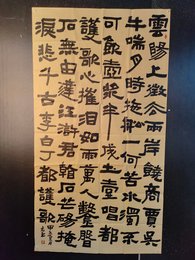 雲陽上徵去兩岸饒商賈吳
牛喘月時拖船一何苦水濁不
可飲壺漿半成土壹唱都
護歌心摧泪如雨萬人鑿盤
石無由達江滸君看石芒碭掩
淚悲千古李白丁都護歌